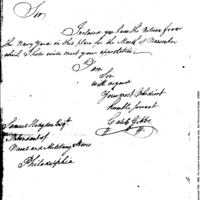 Sir
Inclosed you have the return from
the Navy Yard in this place for the Month of November
which I hope will meet your approbation
I am
Sir
with esteem
Your most Obedient
humble servant
Caleb Gibbs
Samuel Hodgdon Esqr.
Intendant of
Naval and Military Stores
Philadelphia